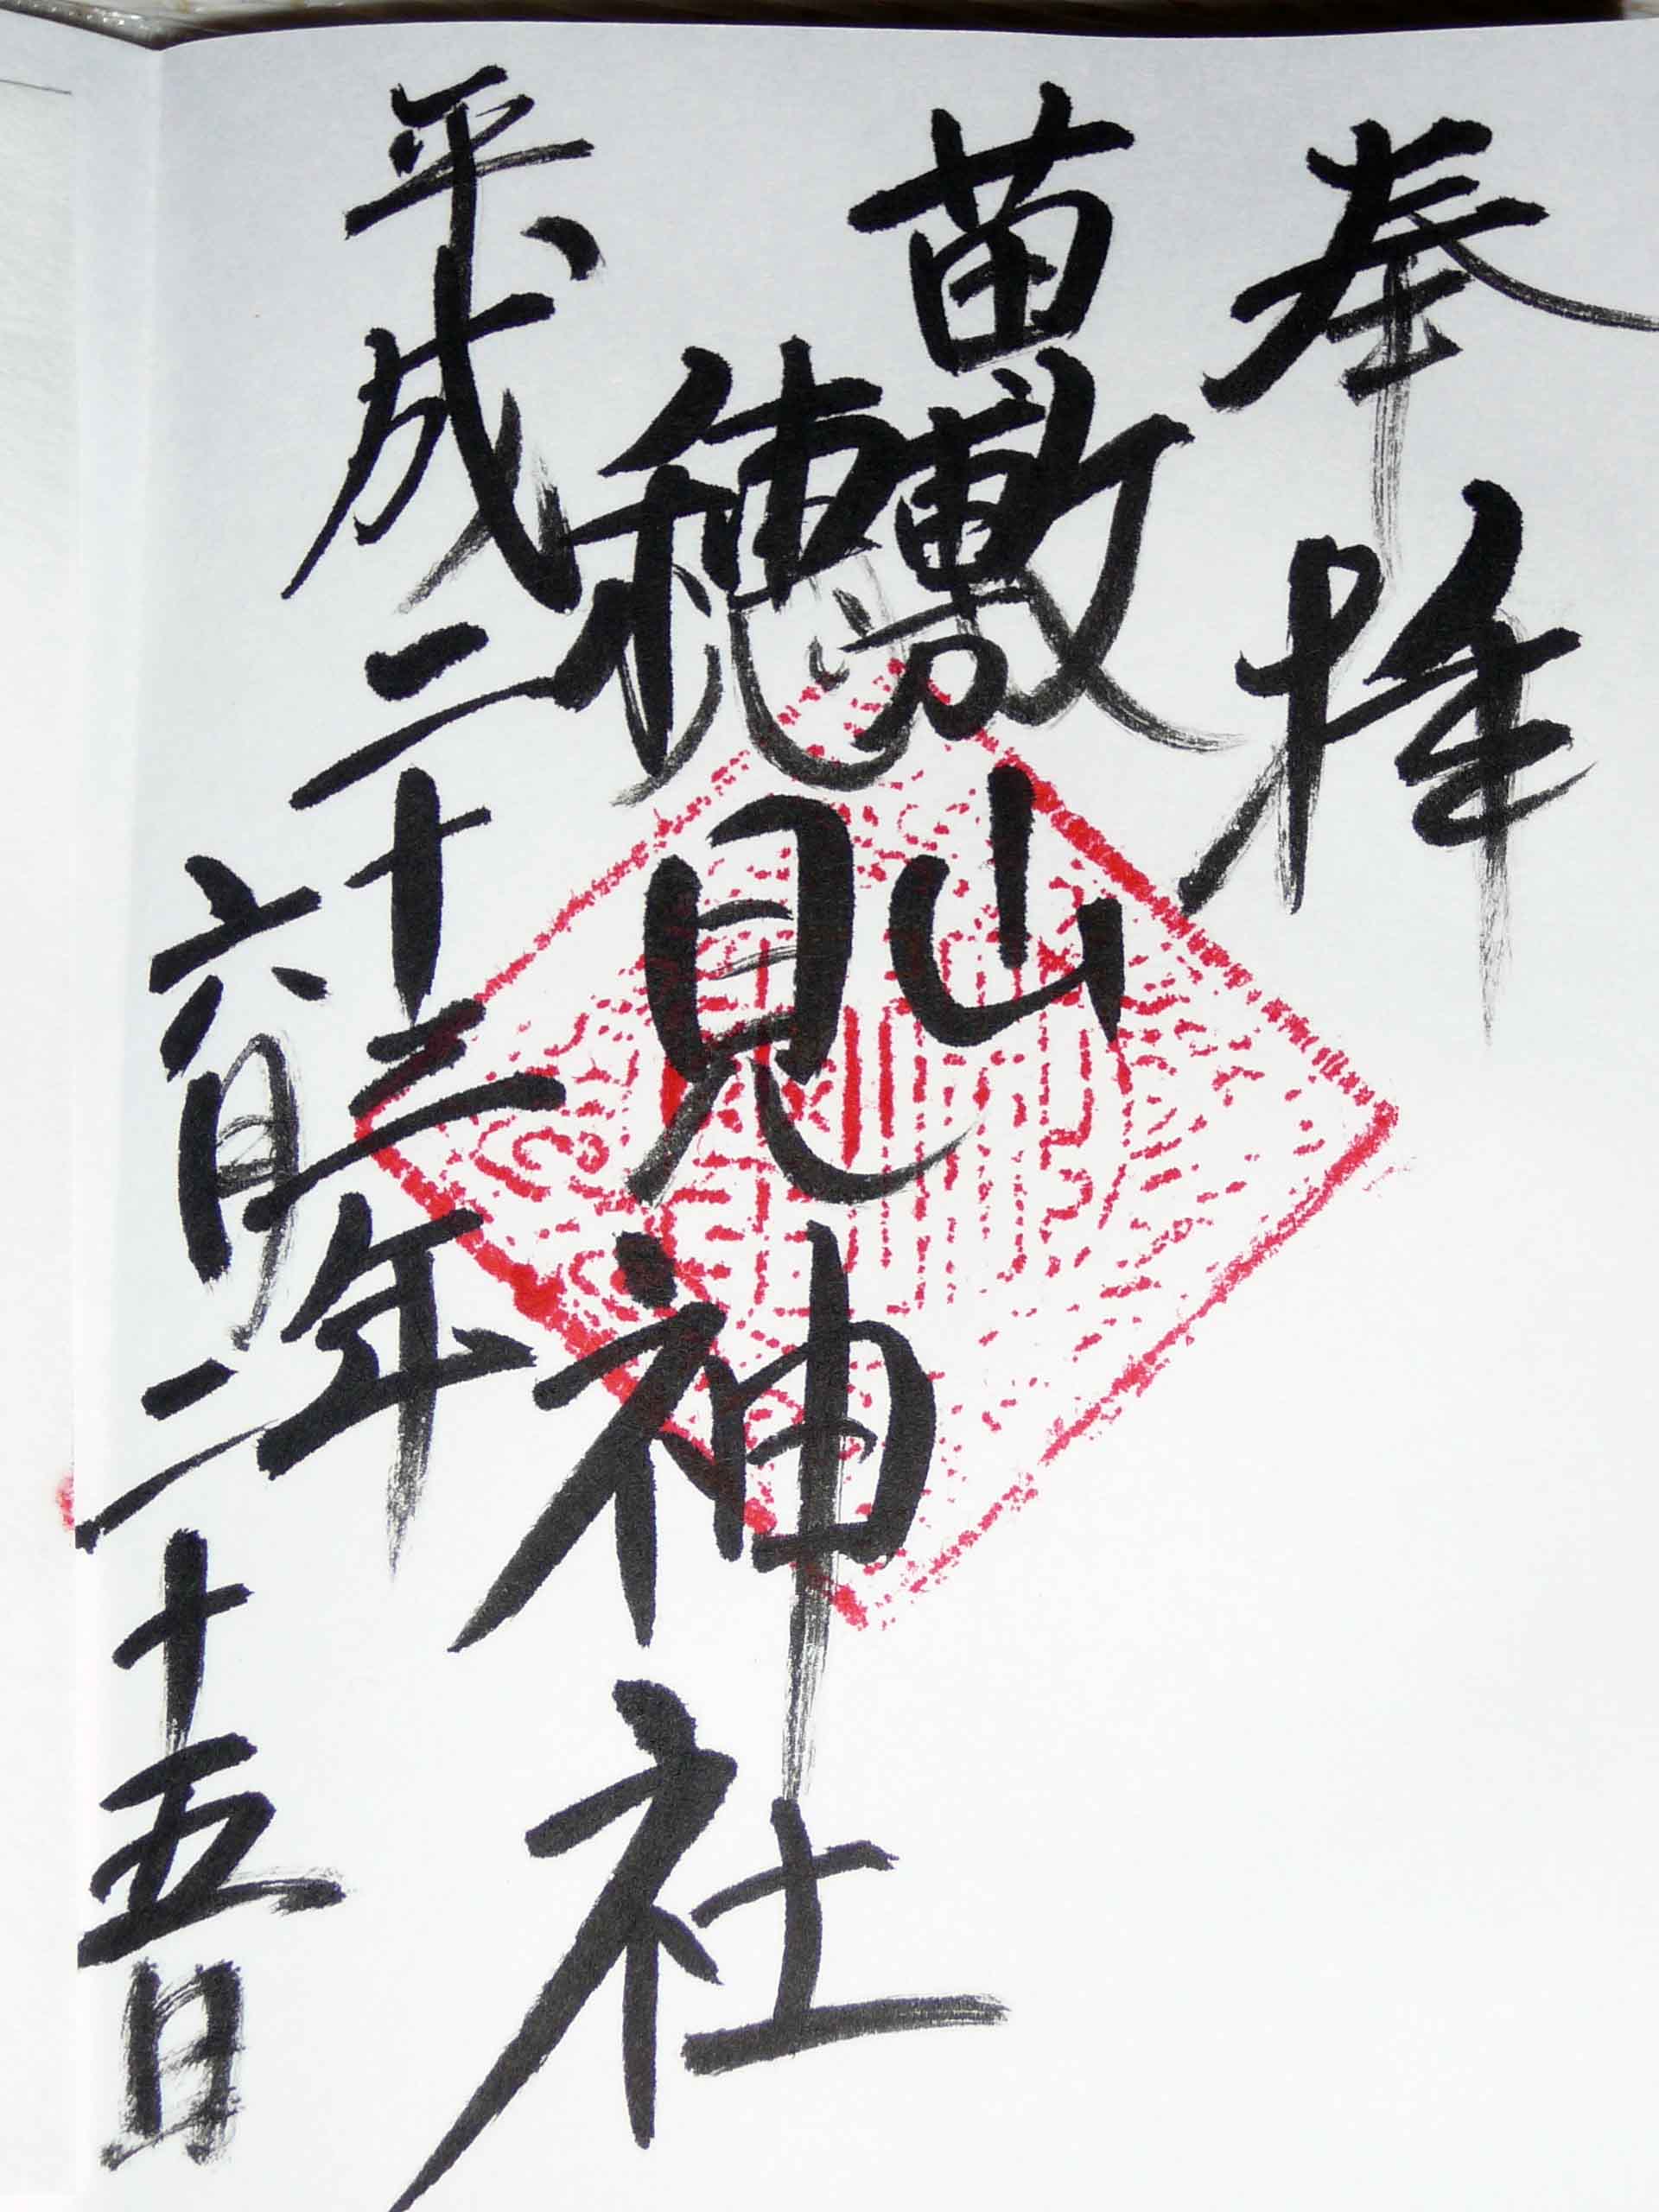 奉拝
苗敷山
穂見神社
平成二十二年
六月二十五日